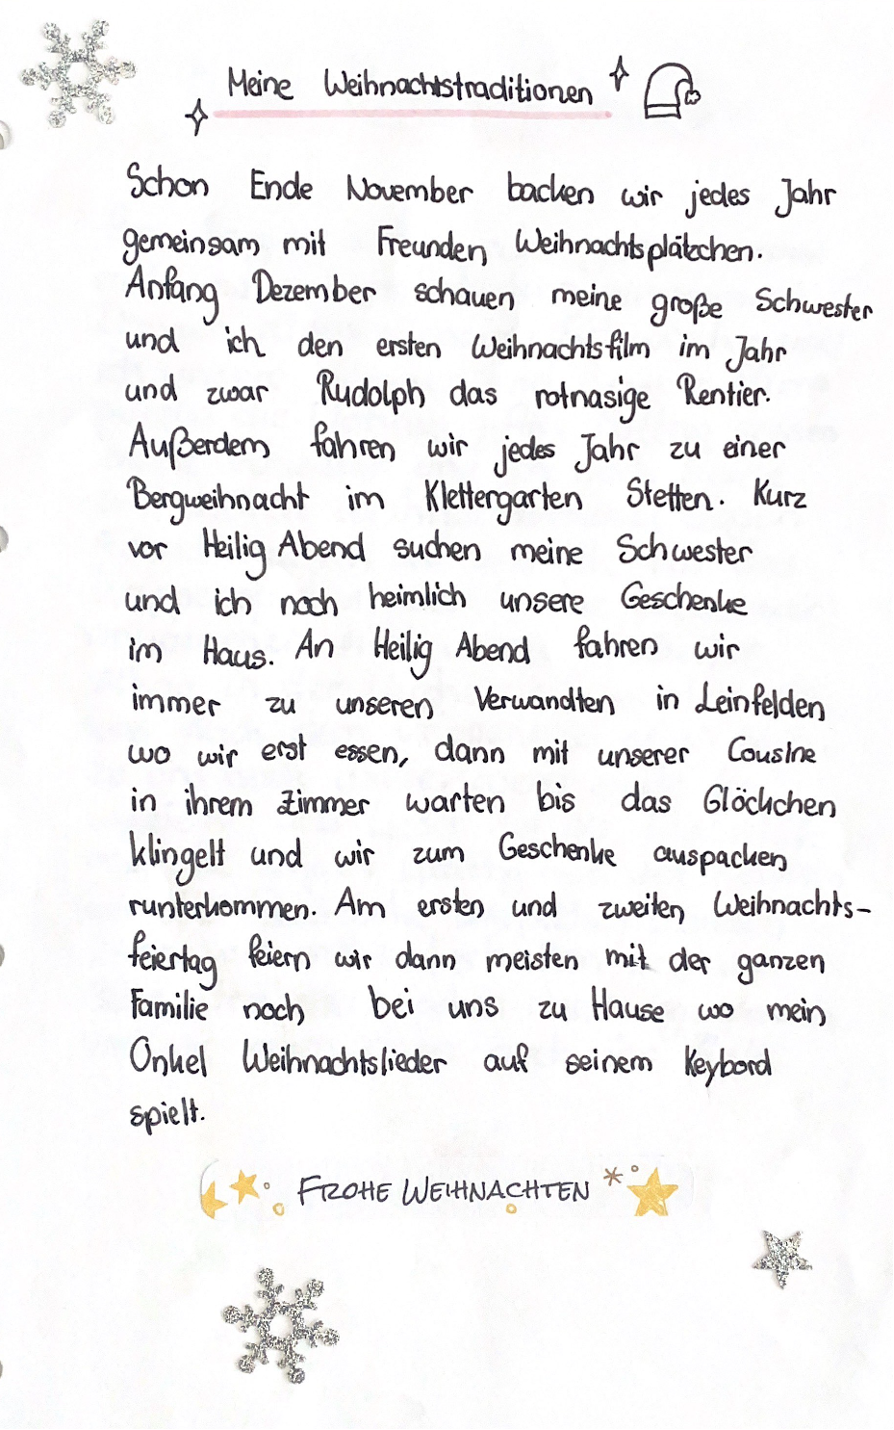 Meine Weihnachtstraditionen
Schon Ende November backen wir jedes Jahr
gemeinsam mit Freunden Weihnachtsplätzchen.
Anfang Dezember schauen meine große Schwester
und ich den ersten Weihnachtsfilm im Jahr
und zwar Rudolph das rotnasige Rentier.
Außerdem fahren wir jedes Jahr zu einer
Bergweihnacht im Klettergarten Stetten. Kurz
vor Heilig Abend suchen meine Schwester
und ich noch heimlich unsere Geschenke
im Haus. An Heilig Abend fahren wir
immer zu unseren Verwandten in Leinfelden
wo wir erst essen, dann mit unserer Cousine
in ihrem Zimmer warten bis das Glöckchen
klingelt und wir zum Geschenke auspacken
runterkommen. Am ersten und zweiten Weihnachts-
feiertag feiern wir dann meisten mit der ganzen
Familie noch bei uns zu Hause wo mein
Onkel Weihnachtslieder auf seinem Keybord
spielt.
FROHE WEIHNACHTEN